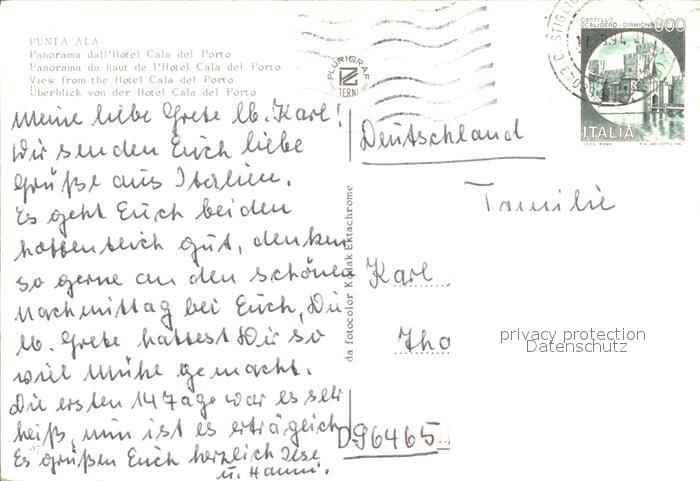 PUNTA ALA
Panorama dall'Hotel Cala del Porto
Panorama du haut de l'Hotel Cala del Porto
View from the Hotel Cala del Porto
Überblick von der Hotel Cala del Porto
Meine liebe Grete lb. Karl!
Wir senden Euch liebe
Grüße aus Italien.
Es geht Euch beiden
hoffentlich gut, denken
so gerne an den schönen
Nachmittag bei Euch, Du
lb. Grete hattest Dir so
viel Mühe gemacht.
Die ersten 14 Tage war es sehr
heiß, nun ist es erträglich
Es grüßen Euch herzlich Ilse
u. Hanni.
da fotocolor Kodak Ektachrome
PLURIGRAF
TERNI
CASTELLO
SCALIGERO - SIRMIONE
800
ITALIA
Deutschland
Familie
Karl
Tho
D96465
privacy protection
Datenschutz